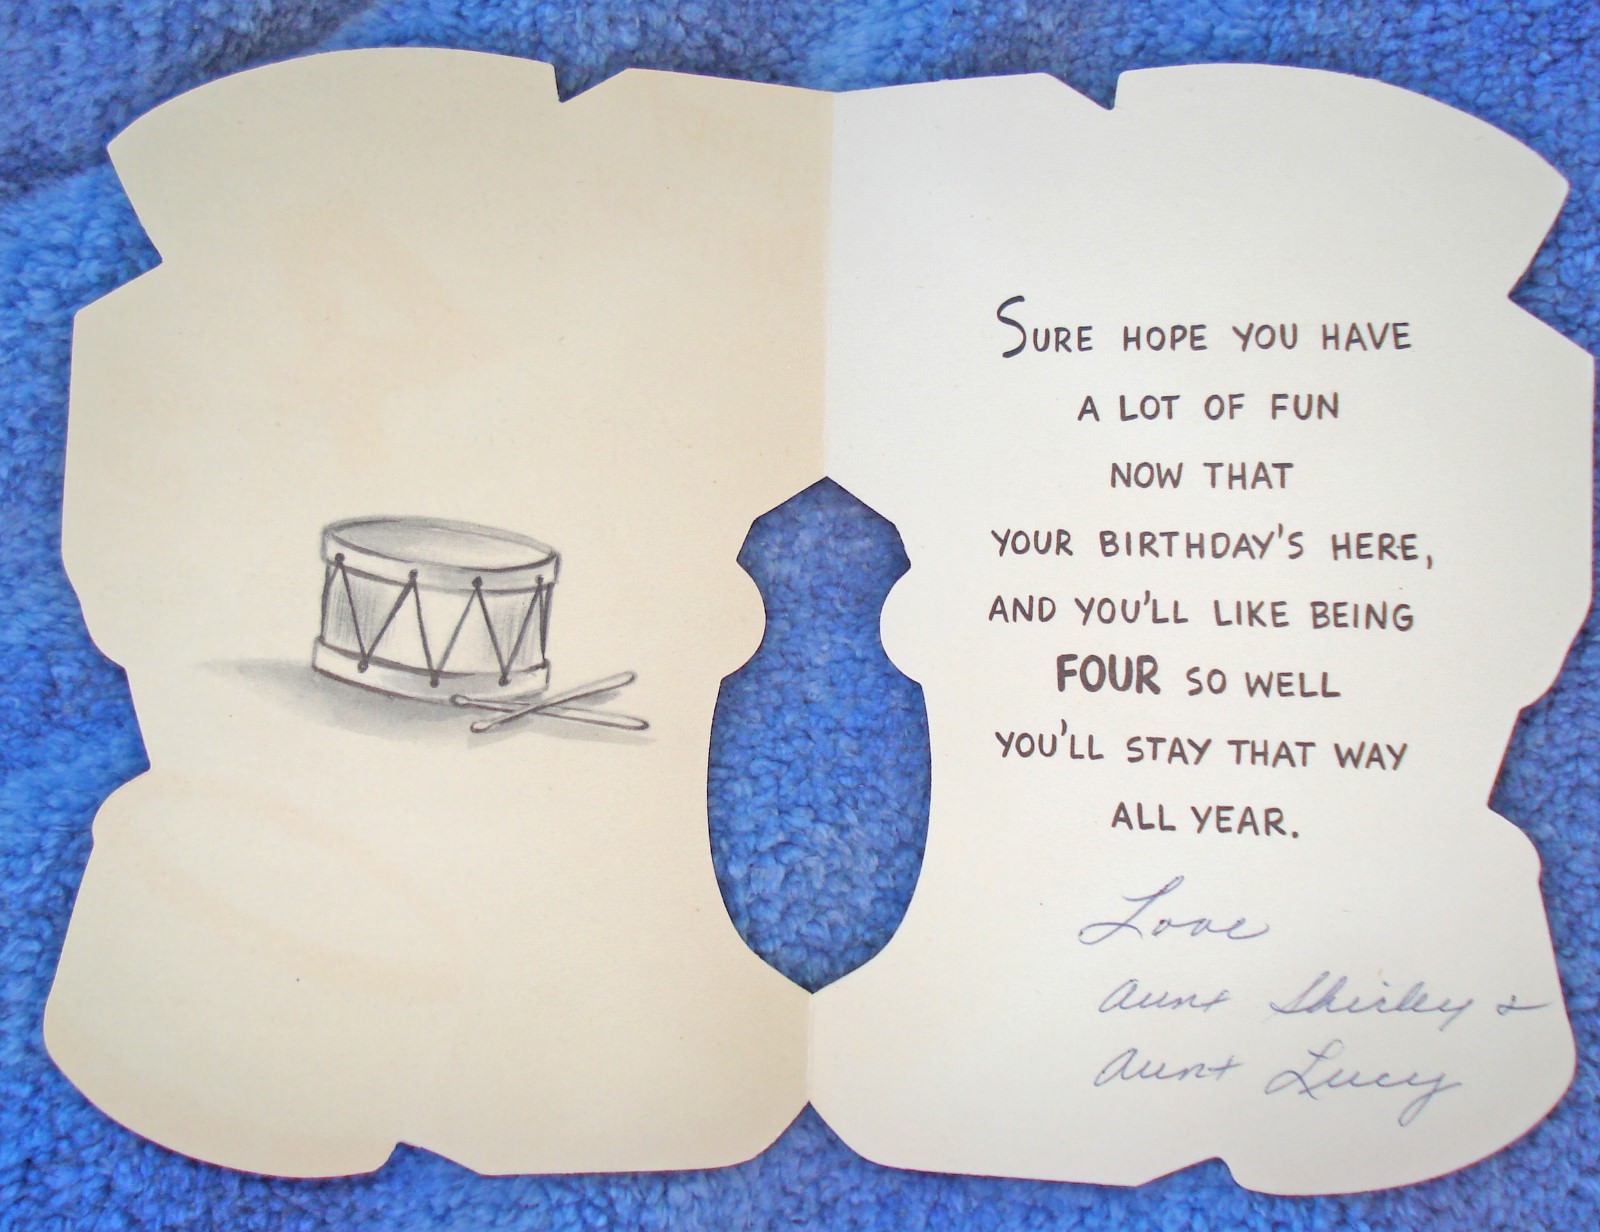 SURE HOPE YOU HAVE
A LOT OF FUN
NOW THAT
YOUR BIRTHDAY'S HERE,
AND YOU'LL LIKE BEING
FOUR SO WELL
YOU'LL STAY THAT WAY
ALL YEAR.
Love
Aunt Shirley &
Aunt Lucy